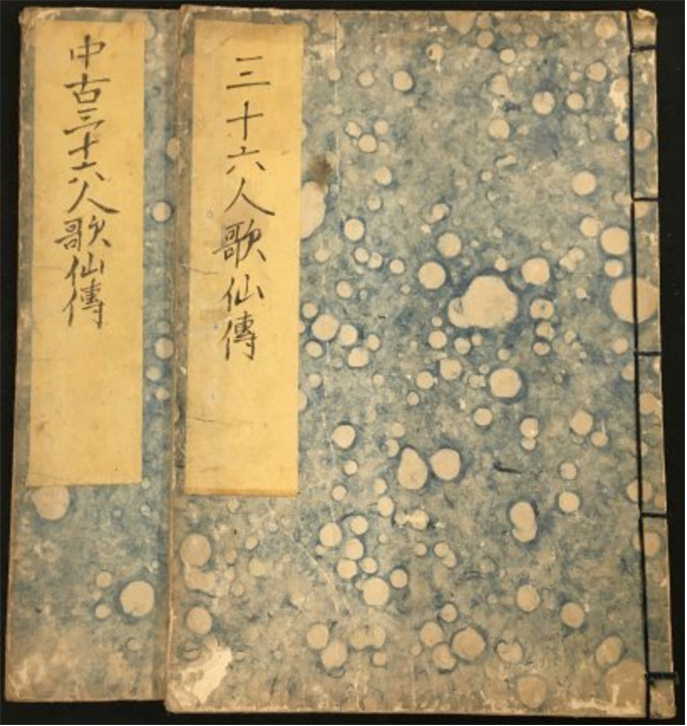 三十六人歌仙傳
中古三十六人歌仙傳